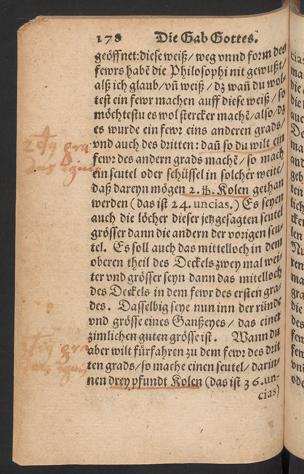 178 Die Gab Gottes.
geöffnet: diese weiß / weg vnnd form des
fewrs habẽ die Philosophi nit gewußt /
alß ich glaub / vñ weiß / dz wañ du wol
test ein fewr machen auff diese weiß / so
möchtestu es wol stercker machẽ / also / dz
es wurde ein fewr eins anderen grads /
vnd auch des dritten: dañ so du wilt ein
fewr des andern grads machẽ / so mach
ein seutel oder schüssel in solcher weite /
daß dareyn mögen 2. lb. Kolen gethan
werden (das ist 24. uncias.) Es seyen
auch die löcher dieser jetzgesagten seutel
grösser dann die andern der vorigen seu-
tel. Es soll auch das mittelloch in dem
oberen theil des Deckels zwey mal wei-
ter vnd grösser seyn dann das mitelloch
des Deckels in dem fewr des ersten gra-
des. Dasselbig seye nun inn der ründe
vnd grösse eines Ganßeyes / das einer
zimlichen guten grösse ist. Wann du
aber wilt fürfahren zu dem fewr des drit
ten grads / so mache einen seutel / darin-
nen drey pfundt Kolen (das ist 36. un-
cias)